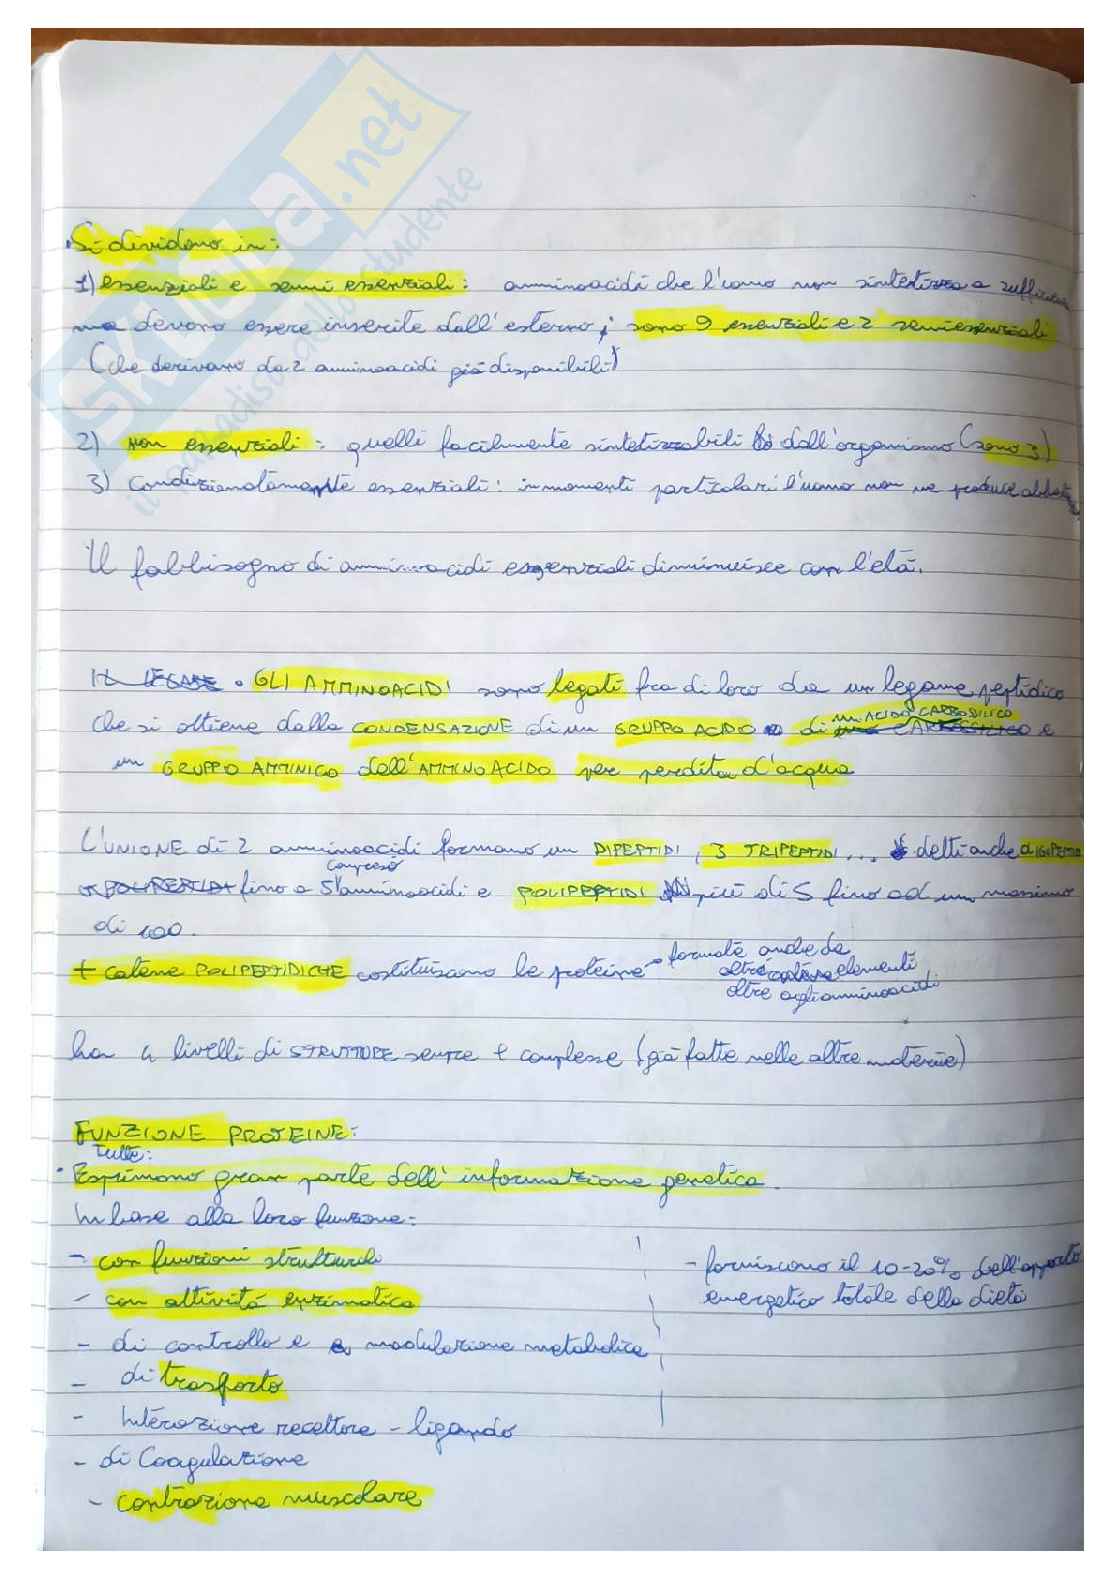 SKUOLA.net
il paradiso dello studente
• Si dividono in:
1) essenziali e semi essenziali: amminoacidi che l'uomo non sintetizza a
ma devono essere inserite dall'esterno; sono 9 essenziali e 2 semiessenziali
(che derivano da 2 amminoacidi già disponibili)
2) non essenziali: quelli facilmente sintetizzabili dall'organismo (sono 3)
3) condizionatamente essenziali: in momenti particolari l'uomo non ne produce
Il fabbisogno di amminoacidi essenziali diminuisce con l'età.
IL LEGAME • GLI AMMINOACIDI sono legati fra di loro da un legame peptidico
che si ottiene dalla CONDENSAZIONE di un GRUPPO ACIDO di un ACIDO CARBOSILICO e
un GRUPPO AMMINICO dell'AMMINOACIDO per perdita d'acqua
L'UNIONE di 2 amminoacidi formano un DIPEPTIDI, 3 TRIPEPTIDI... detti anche
compreso
fino a 5 amminoacidi e POLIPEPTIDI più di 5 fino ad un massimo
di 100.
+ catene POLIPEPTIDICHE costituisono le proteine → formate anche da
altri elementi
oltre agli amminoacidi
ha 4 livelli di STRUTTURE sempre + complesse (già fatte nelle altre materie)
FUNZIONE PROTEINE:
Tutte:
• Esprimono gran parte dell'informazione genetica.
In base alla loro funzione:
- con funzioni strutturali
- forniscono il 10-20% dell'apporto
energetico totale della dieta
- con attività enzimatica
- di controllo e modulazione metabolica
- di trasporto
- Interazione recettore - ligando
- di Coagulazione
- contrazione muscolare